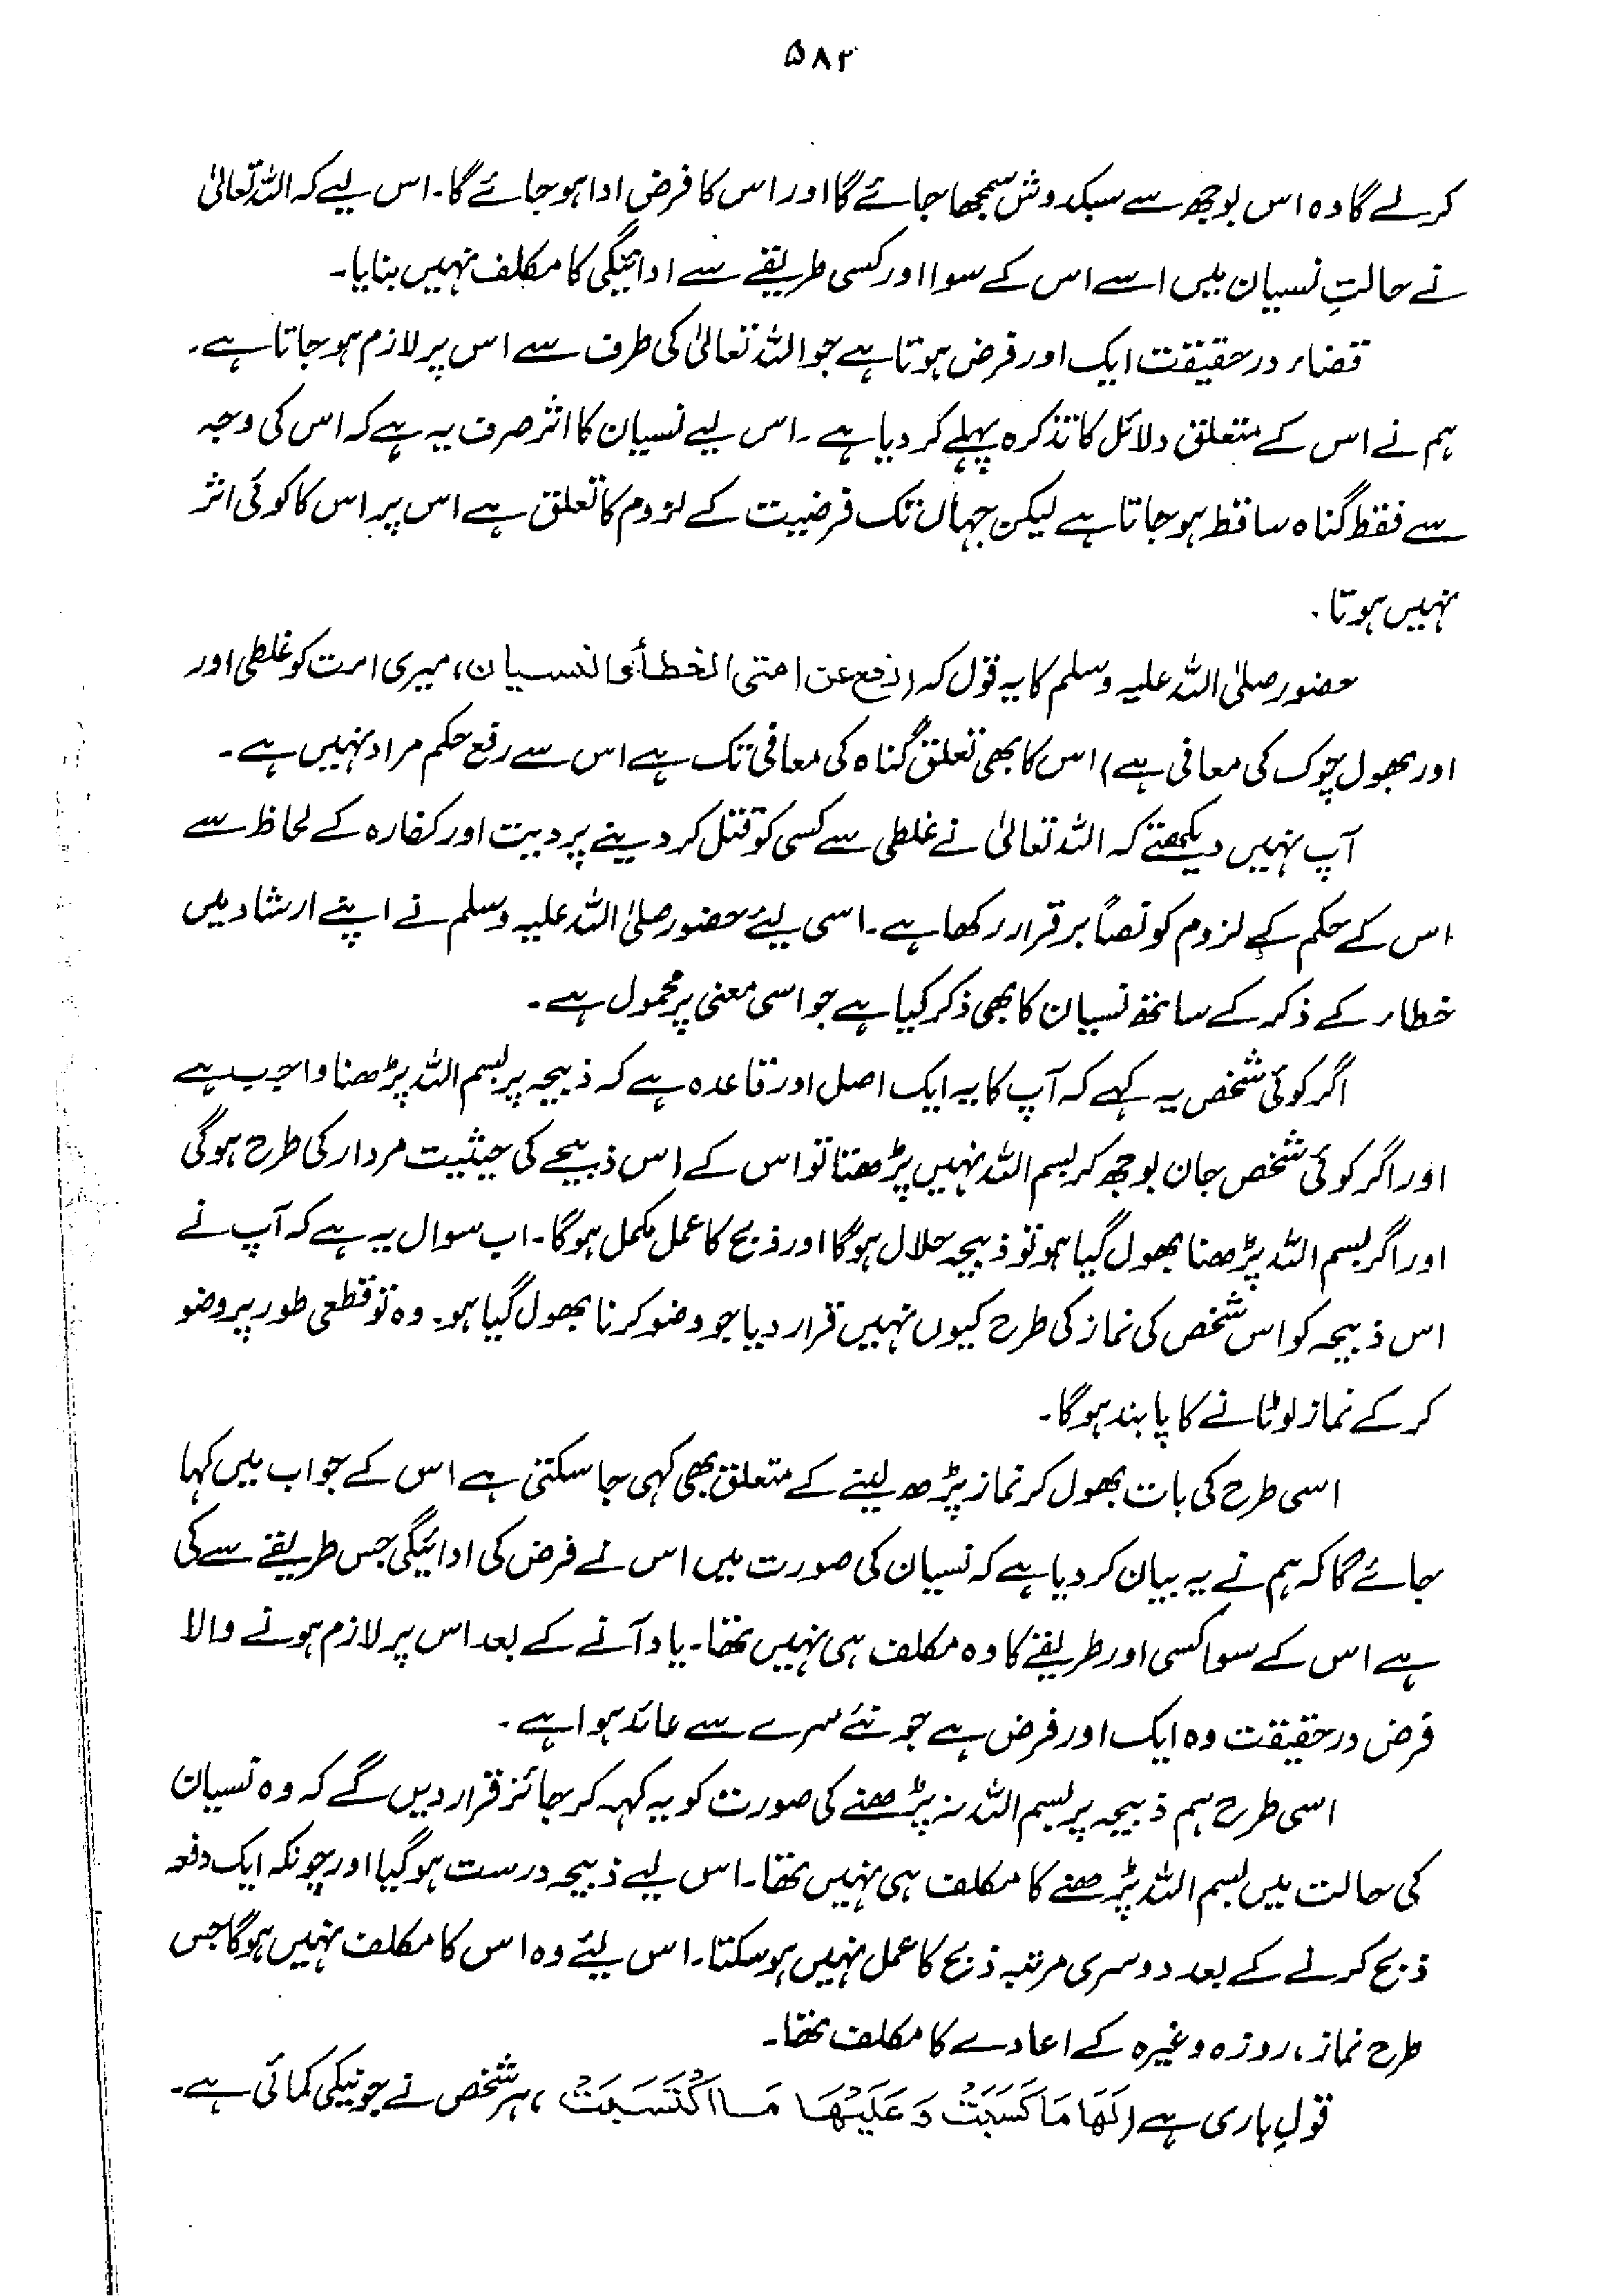 ۵۸۲
کرلے گا وہ اس بوجھ سے سبکدوش سمجھا جائے گا اور اس کا فرض ادا ہو جائے گا۔ اس لیے کہ اللہ تعالیٰ
نے حالتِ نسیان میں اسے اس کے سوا اور کسی طریقے سے ادائیگی کا مکلف نہیں بنایا۔
قضاء درحقیقت ایک اور فرض ہوتا ہے جو اللہ تعالیٰ کی طرف سے اس پر لازم ہو جاتا ہے۔
ہم نے اس کے متعلق دلائل کا تذکرہ پہلے کر دیا ہے۔ اس لیے نسیان کا اثر صرف یہ ہے کہ اس کی وجہ
سے فقط گناہ ساقط ہو جاتا ہے لیکن جہاں تک فرضیت کے لزوم کا تعلق ہے اس پر اس کا کوئی اثر
نہیں ہوتا۔
حضور صلی اللہ علیہ وسلم کا یہ قول کہ (رفع عن امتی الخطأ والنسیان، میری امت کو غلطی اور
اور بھول چوک کی معافی ہے) اس کا بھی تعلق گناہ کی معافی تک ہے اس سے رفع حکم مراد نہیں ہے۔
آپ نہیں دیکھتے کہ اللہ تعالیٰ نے غلطی سے کسی کو قتل کر دینے پر دیت اور کفارہ کے لحاظ سے
اس کے حکم کے لزوم کو نصاً برقرار رکھا ہے۔ اسی لیئے حضور صلی اللہ علیہ وسلم نے اپنے ارشاد میں
خطاء کے ذکر کے ساتھ نسیان کا بھی ذکر کیا ہے جو اسی معنی پر محمول ہے۔
اگر کوئی شخص یہ کہے کہ آپ کا یہ ایک اصل اور قاعدہ ہے کہ ذبیحہ پر بسم اللہ پڑھنا واجب ہے
اور اگر کوئی شخص جان بوجھ کر بسم اللہ نہیں پڑھتا تو اس کے اس ذبیحے کی حیثیت مردار کی طرح ہوگی
اور اگر بسم اللہ پڑھنا بھول گیا ہو تو ذبیحہ حلال ہوگا اور ذبح کا عمل مکمل ہوگا۔ اب سوال یہ ہے کہ آپ نے
اس ذبیحہ کو اس شخص کی نماز کی طرح کیوں نہیں قرار دیا جو وضو کرنا بھول گیا ہو۔ وہ تو قطعی طور پر وضو
کر کے نماز لوٹانے کا پابند ہوگا۔
اسی طرح کی بات بھول کر نماز پڑھ لینے کے متعلق بھی کہی جا سکتی ہے اس کے جواب میں کہا
جائے گا کہ ہم نے یہ بیان کر دیا ہے کہ نسیان کی صورت میں اس نے فرض کی ادائیگی جس طریقے سے کی
ہے اس کے سوا کسی اور طریقے کا وہ مکلف ہی نہیں تھا۔ یاد آنے کے بعد اس پر لازم ہونے والا
فرض درحقیقت وہ ایک اور فرض ہے جو نئے سرے سے عائد ہوا ہے۔
اسی طرح ہم ذبیحہ پر بسم اللہ نہ پڑھنے کی صورت کو یہ کہہ کر جائز قرار دیں گے کہ وہ نسیان
کی حالت میں بسم اللہ پڑھنے کا مکلف ہی نہیں تھا۔ اس لیے ذبیحہ درست ہو گیا اور چونکہ ایک دفعہ
ذبح کرلے کے بعد دوسری مرتبہ ذبح کا عمل نہیں ہو سکتا۔ اس لیئے وہ اس کا مکلف نہیں ہوگا جس
طرح نماز، روزہ وغیرہ کے اعادے کا مکلف تھا۔
قولِ باری ہے (لَهَا مَا كَسَبَتْ وَعَلَيْهَا مَا اكْتَسَبَتْ، ہر شخص نے جو نیکی کمائی ہے۔